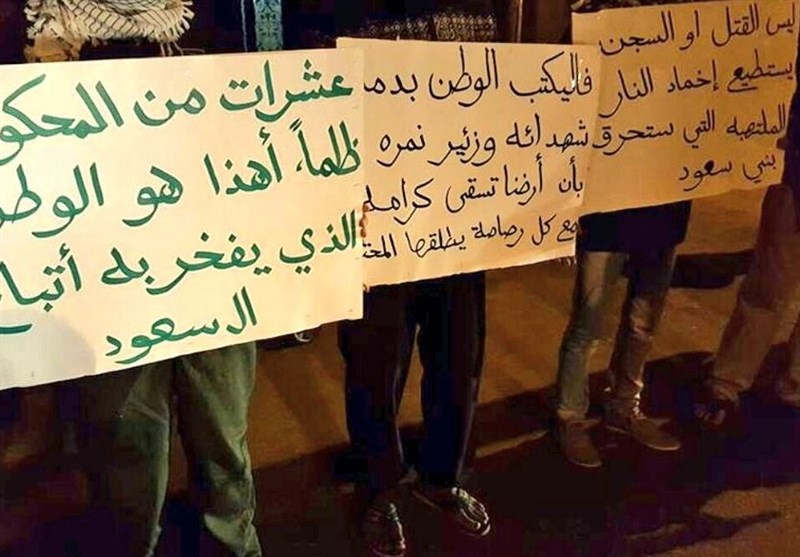 ليس القتل او السجن
يستطيع إخماد النار
الملتهبه التي ستحرق
بني سعود
فاليكتب الوطن بدم
شهدائه وزئير نمره
بأن أرضنا تسقى كرامة
مع كل رصاصة يطلقها
عشرات من المحكو
ظلماً، أهذا هو الوط
الذي يفخر به أتبا
ال سعود